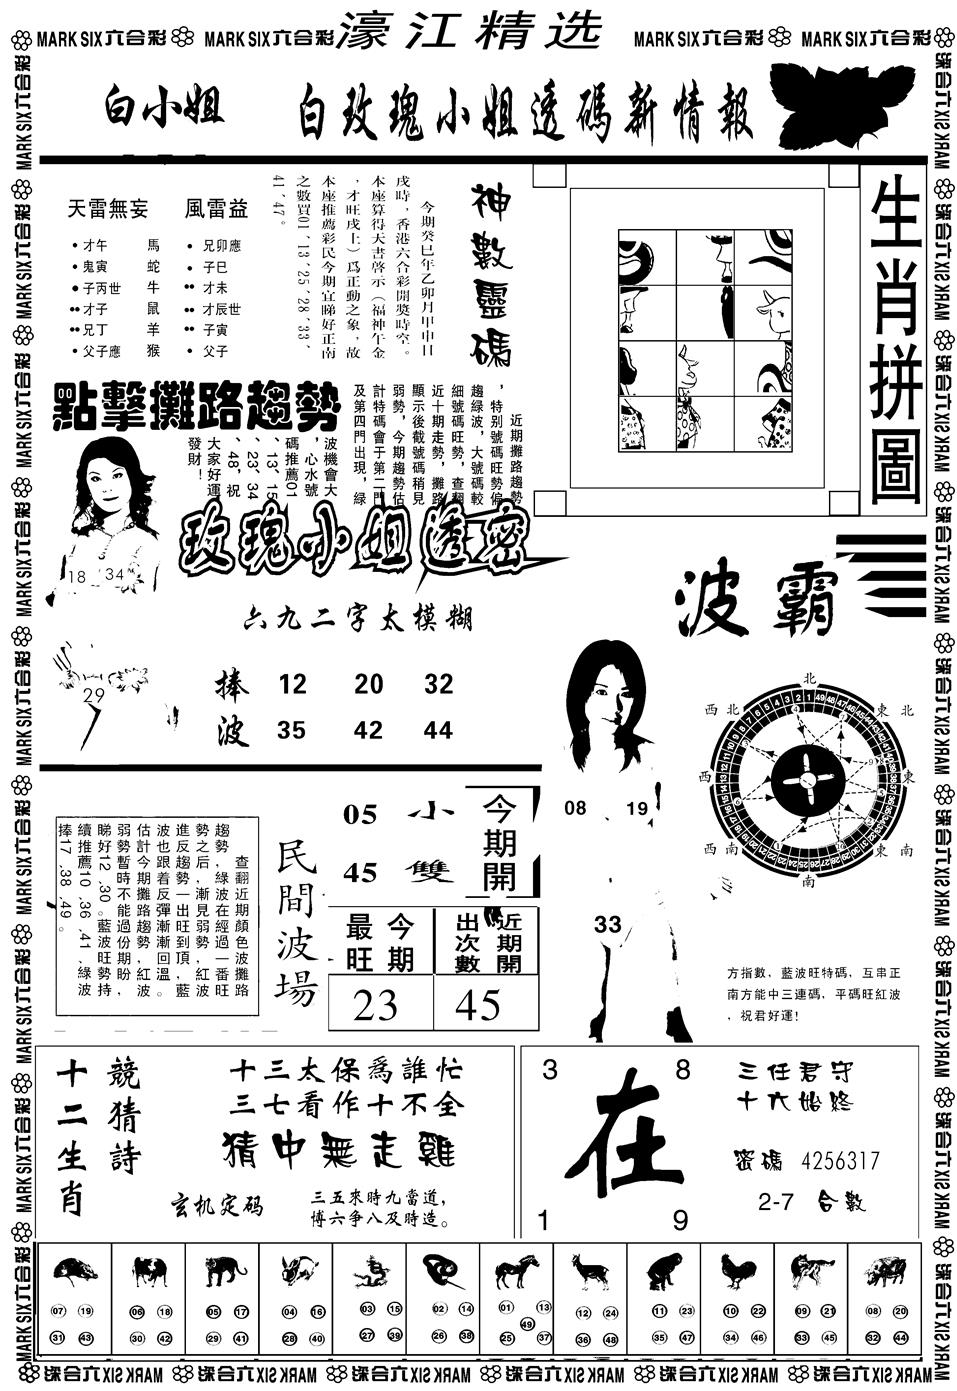 MARK SIX六合彩 MARK SIX六合彩 濠江精选 MARK SIX六合彩 MARK SIX六合彩
白小姐 白玫瑰小姐透碼新情報
天雷無妄 風雷益
才午 馬 兄卯應
鬼寅 蛇 子巳
子丙世 牛 才未
才子 鼠 才辰世
兄丁 羊 子寅
父子應 猴 父子
神數靈碼
今期癸巳年乙卯月甲申日
戌時，香港六合彩開獎時空。
本座算得天書啓示（福神午金
，才旺戌土）爲正動之象，故
本座推薦彩民今期宜睇好正南
之數買01、13、25、28、33、
41、47。
生肖拼圖
點擊攤路趨勢
近期攤路趨勢
，特别號碼旺勢偏
趨綠波，大號碼較
細號碼旺勢，查翻
近十期走勢，攤路
顯示後截號碼稍見
弱勢，今期趨勢估
計特碼會于第二門
及第四門出現，綠
波機會大
，心水號
碼推薦01
、13、15
、23、34
、48，祝
大家好運
發財！
18 34
29
玫瑰小姐透密
六九二字太模糊
捧 12 20 32
波 35 42 44
波霸
北
西北 東北
西 東
西南 東南
南
08 19
33
方指數，藍波旺特碼，互串正
南方能中三連碼，平碼旺紅波
，祝君好運!
查翻近期顏色波攤路
趨勢，綠波在經過一番旺
勢之后，漸見弱勢，紅波
進反趨勢一出旺到頂，藍
波也跟着反彈漸漸回溫。
估計今期攤路趨勢，紅波
弱勢暫時不能過份期盼，
睇好12、30。藍波旺勢持
續推薦10、36、41，綠波
捧17、38、49。
民間波場
05 小 今期開
45 雙
今期最旺 近期開出次數
23 45
競猜詩
十二生肖
十三太保爲誰忙
三七看作十不全
猜中無走雞
玄机定码
三五來時九當道，
博六争八及時造。
3 8
在
1 9
三任君守
十六始終
密碼 4256317
2-7 合數
07 19 06 18 05 17 04 16 03 15 02 14 01 13 12 24 11 23 10 22 09 21 08 20
49
31 43 30 42 29 41 28 40 27 39 26 38 25 37 36 48 35 47 34 46 33 45 32 44